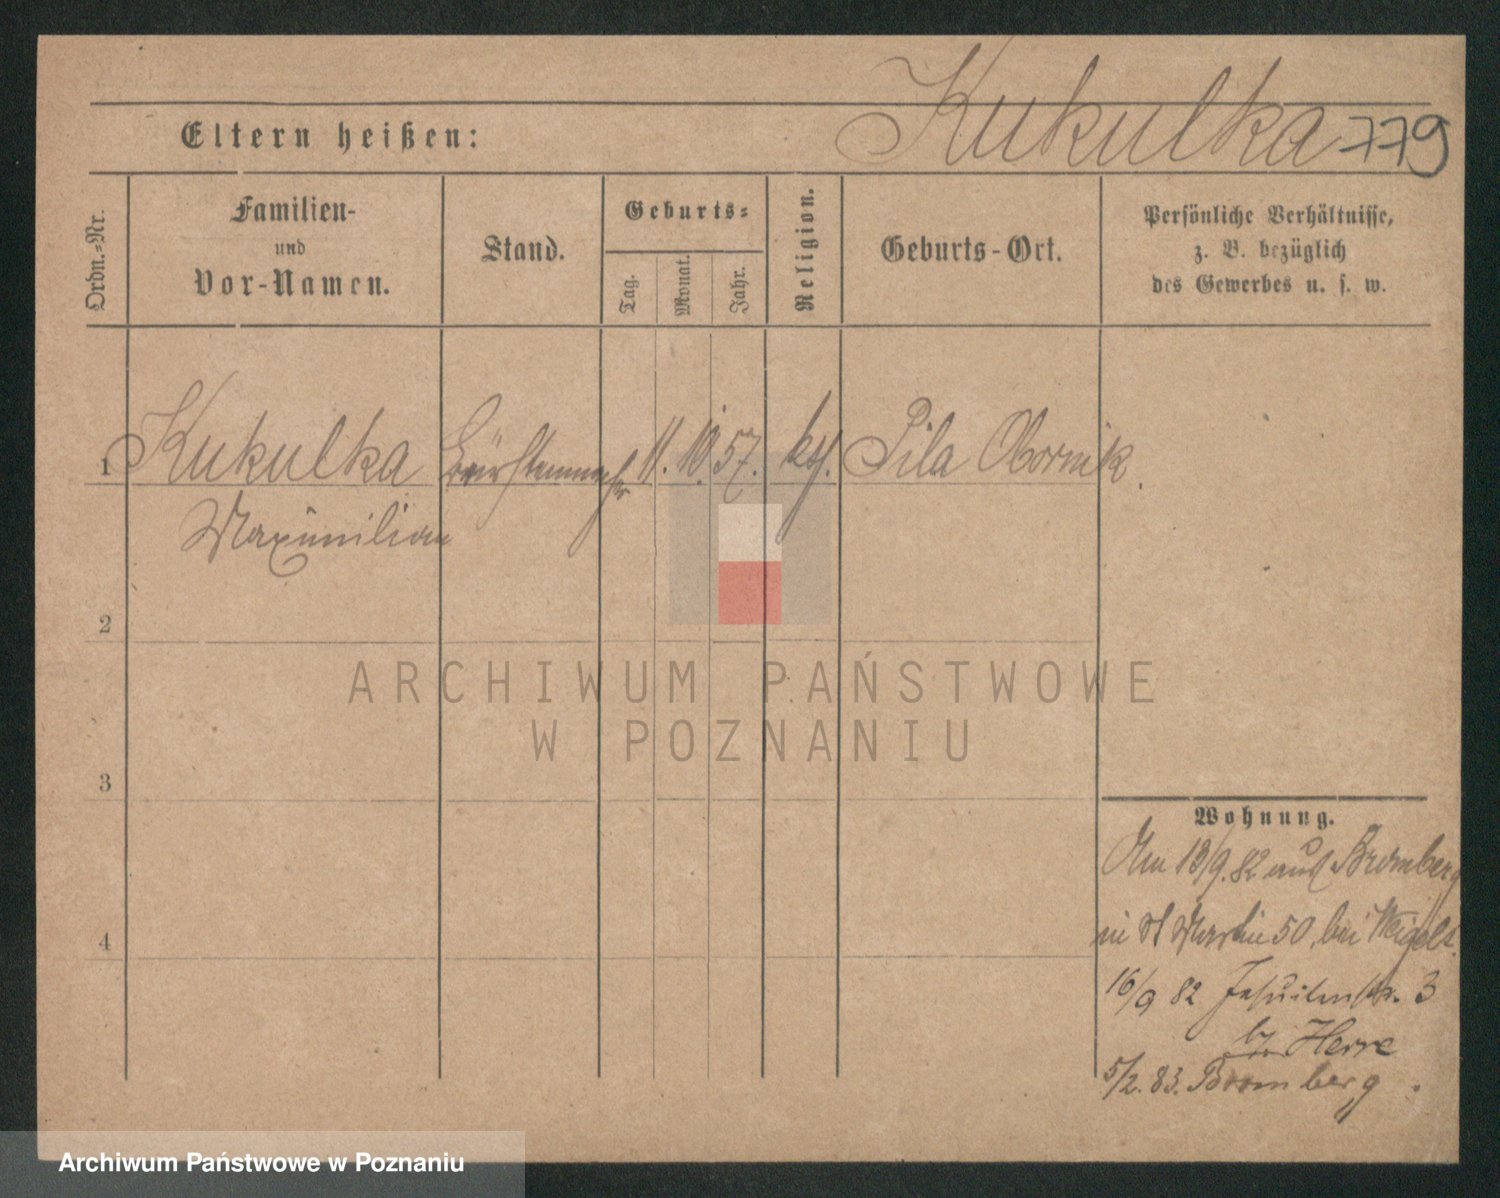 Kukulka 779
Eltern heißen:
Ordn.-Nr.
Familien-
und
Vor-Namen.
Stand.
Geburts-
Tag.
Monat.
Jahr.
Religion.
Geburts-Ort.
Persönliche Verhältnisse,
z. B. bezüglich
des Gewerbes u. s. w.
1 Kukulka Bürstenmacher 11. 10. 57. kth. Pila Obornik.
Maximilian
2
3
4
ARCHIWUM PAŃSTWOWE
W POZNANIU
Wohnung.
Am 13/9. 82 aus Bromberg
in St Martin 50, bei Weigelt.
16/9 82 Jesuitenstr. 3
b/ Herre
5/2. 83. Bromberg.
Archiwum Państwowe w Poznaniu